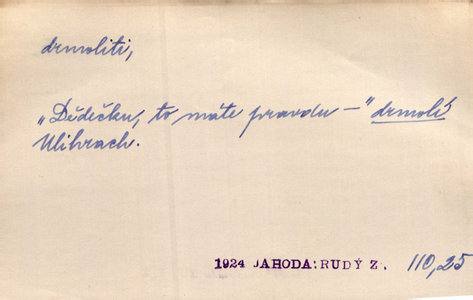 drmoliti,
„Dědečku, to máte pravdu –" drmolí
Ulihrach.
1924 JAHODA: RUDÝ Z. 110,25